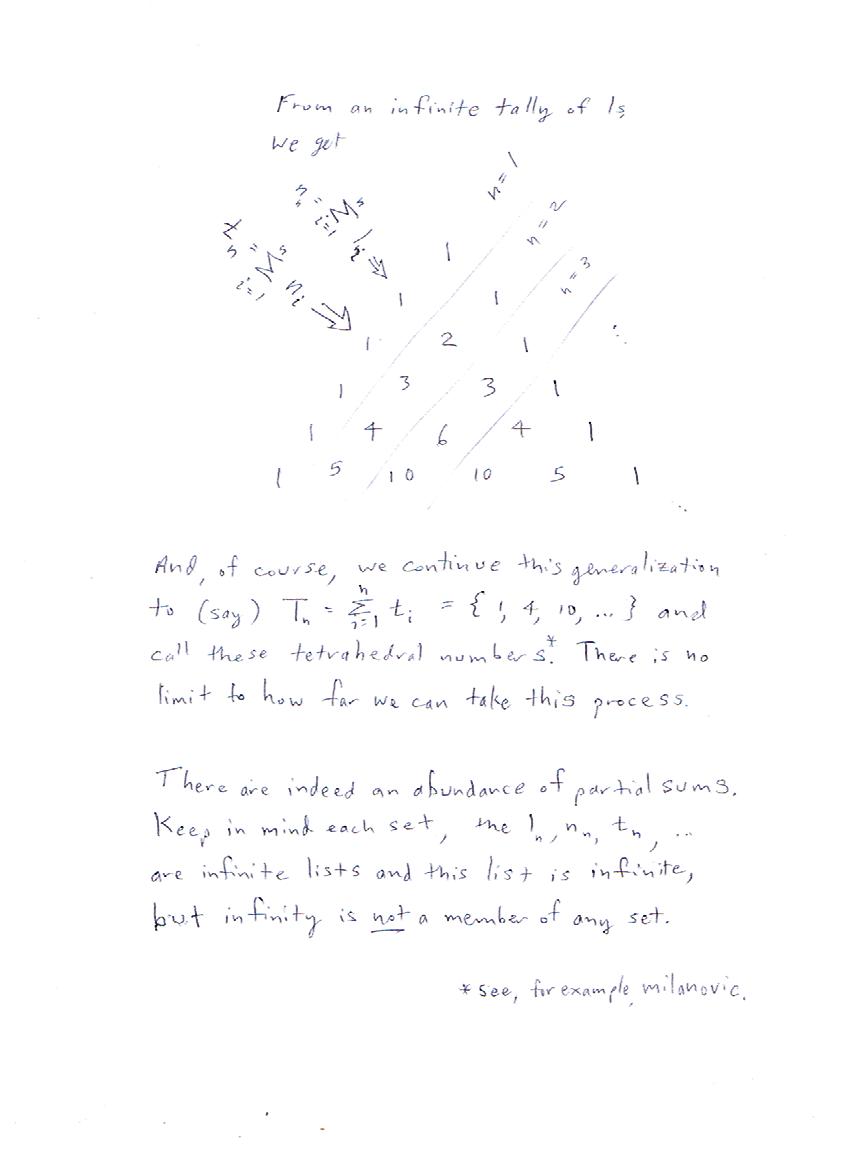 From an infinite tally of 1s,
We get
n = 1
n = 2
n = 3
n_n = ∑_{i=1}^n 1_i ⇒
t_n = ∑_{i=1}^n n_i ⇒
1
1 1
1 2 1
1 3 3 1
1 4 6 4 1
1 5 10 10 5 1
And, of course, we continue this generalization
to (say) T_n = ∑_{i=1}^n t_i = { 1, 4, 10, ... } and
call these tetrahedral numbers.* There is no
limit to how far we can take this process.
There are indeed an abundance of partial sums.
Keep in mind each set, the 1_n, n_n, t_n, ...
are infinite lists and this list is infinite,
but infinity is not a member of any set.
* see, for example, milanovic.